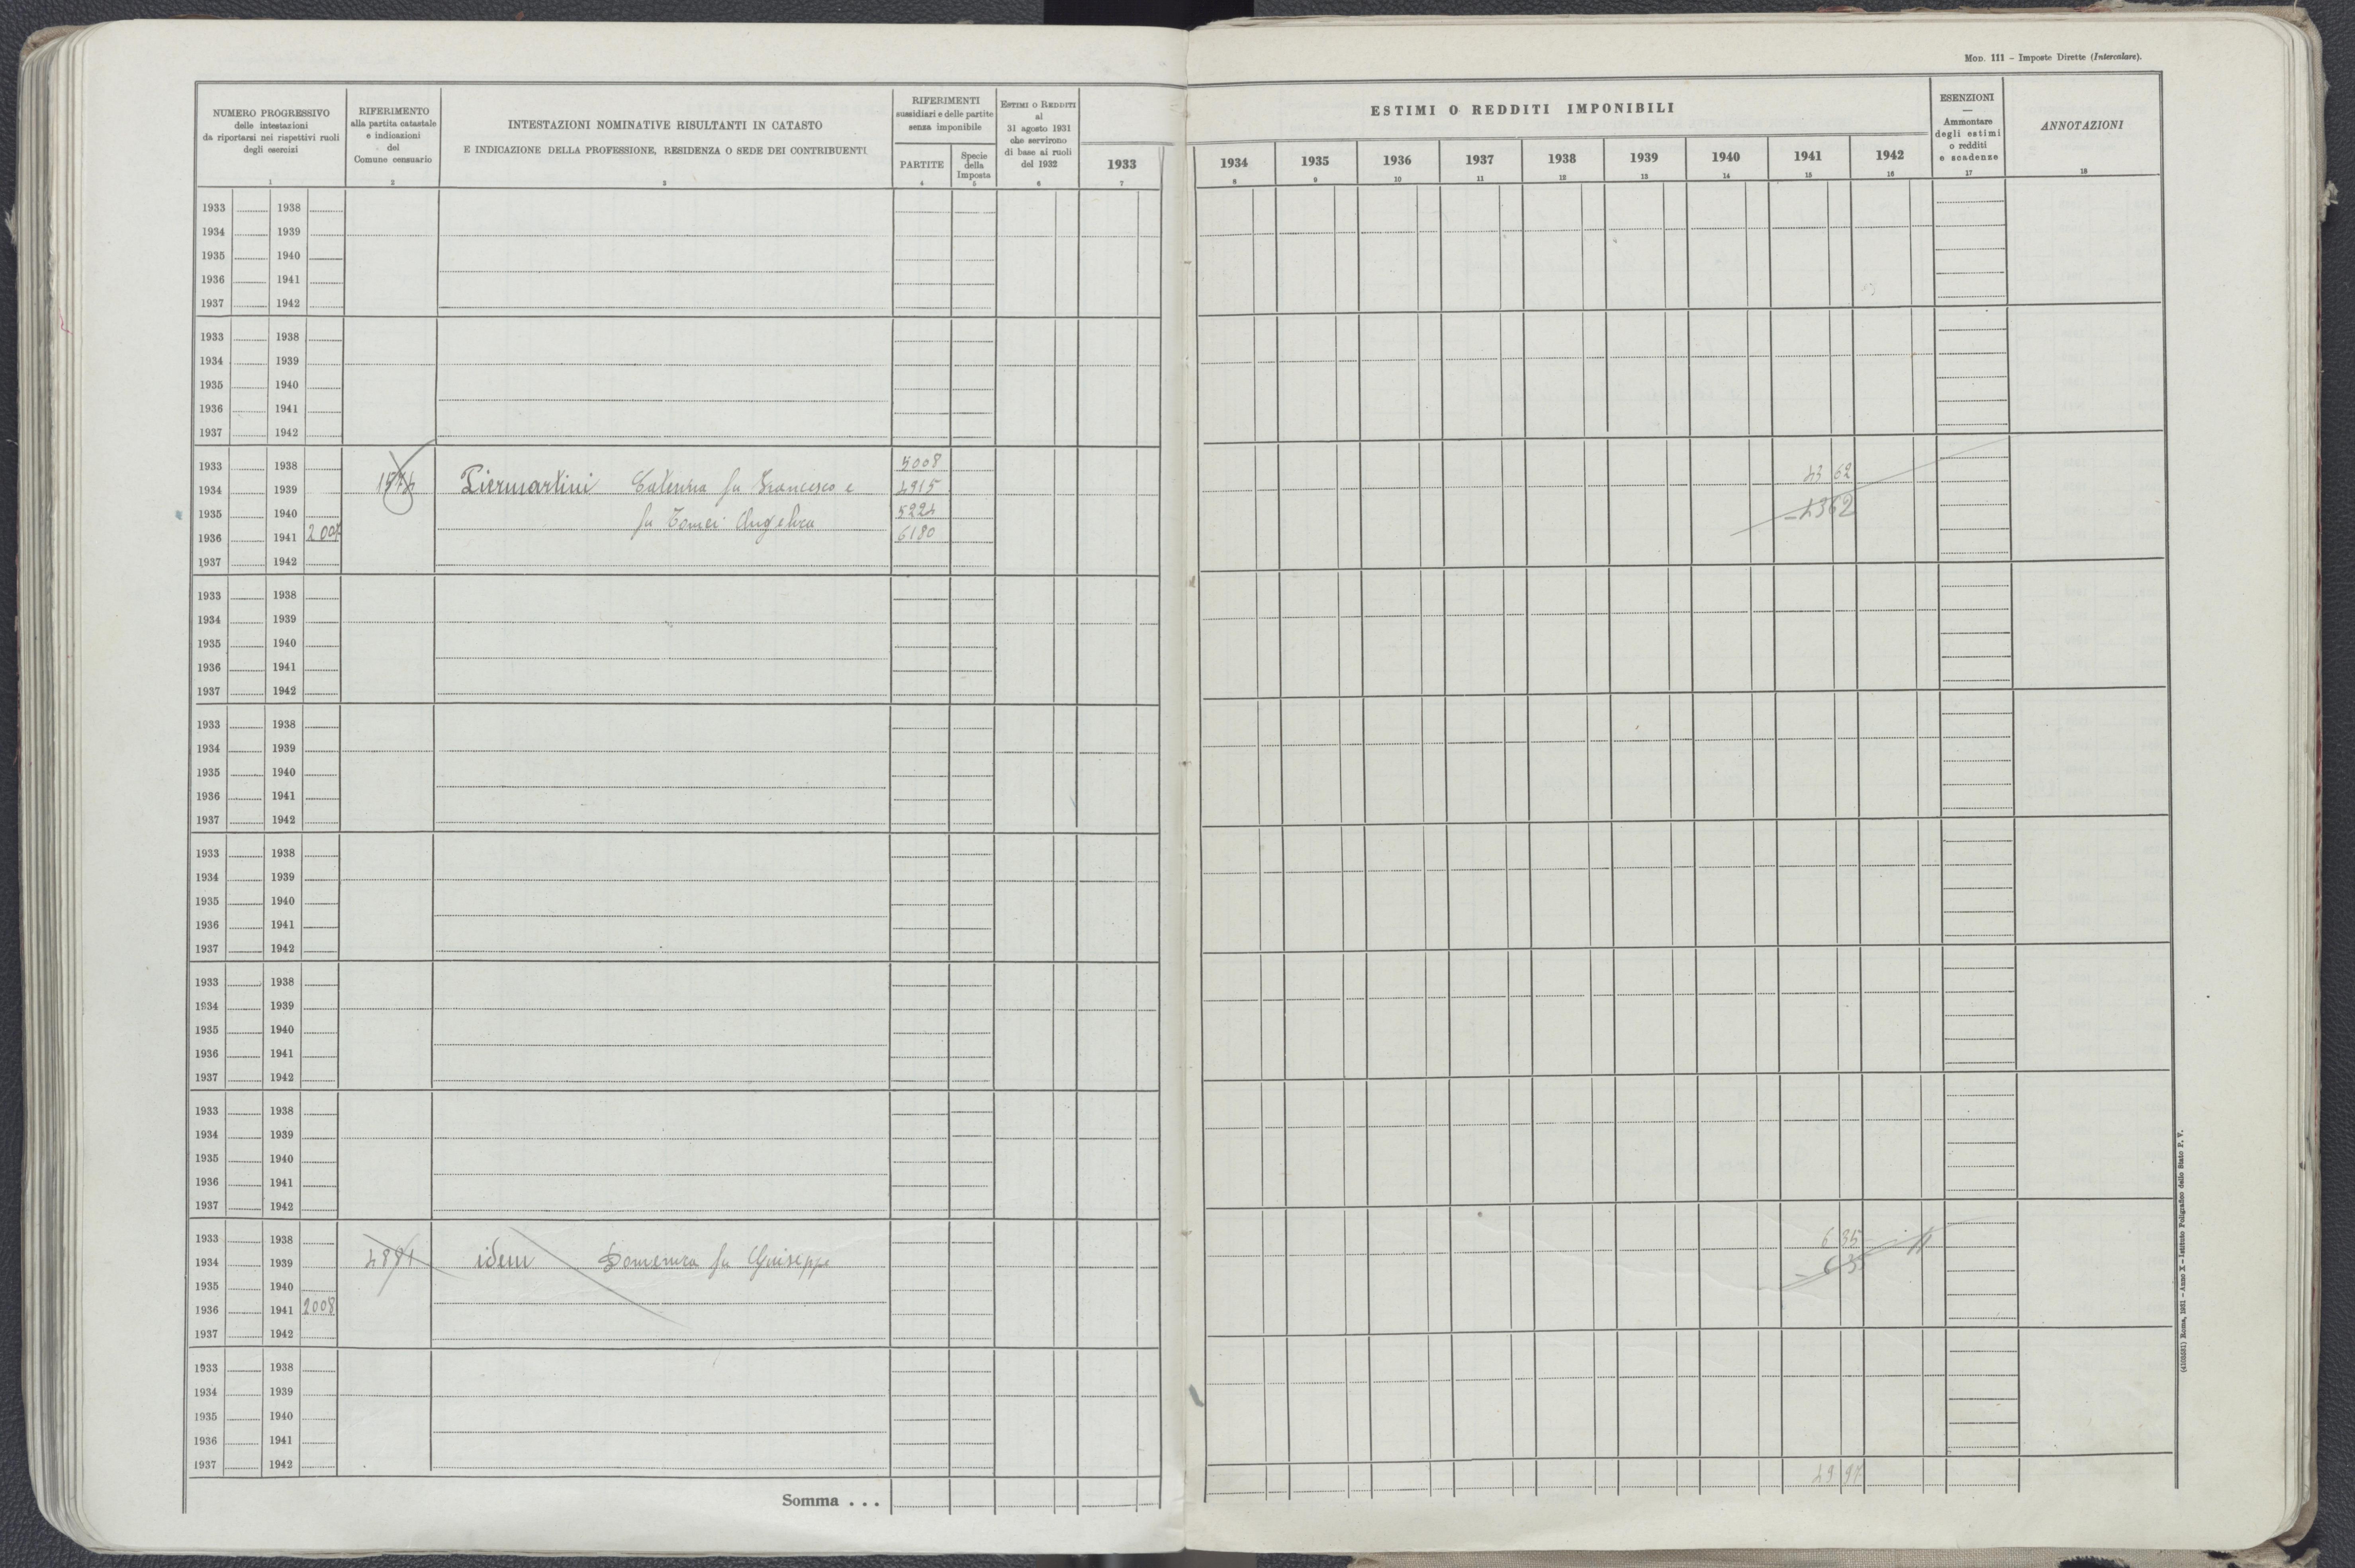 MOD. 111 – Imposte Dirette (Intercalare).
NUMERO PROGRESSIVO
delle intestazioni
da riportarsi nei rispettivi ruoli
degli esercizi
1
RIFERIMENTO
alla partita catastale
e indicazioni
del
Comune censuario
2
INTESTAZIONI NOMINATIVE RISULTANTI IN CATASTO
E INDICAZIONE DELLA PROFESSIONE, RESIDENZA O SEDE DEI CONTRIBUENTI
3
RIFERIMENTI
sussidiari e delle partite
senza imponibile
PARTITE
4
Specie
della
Imposta
5
ESTIMI O REDDITI
al
31 agosto 1931
che servirono
di base ai ruoli
del 1932
6
ESTIMI O REDDITI IMPONIBILI
1933
7
1934
8
1935
9
1936
10
1937
11
1938
12
1939
13
1940
14
1941
15
1942
16
ESENZIONI
—
Ammontare
degli estimi
o redditi
e scadenze
17
ANNOTAZIONI
18
1933 1938
1934 1939
1935 1940
1936 1941
1937 1942
1933 1938
1934 1939
1935 1940
1936 1941
1937 1942
1933 1938 5008 43 62
1934 1939 Piermartini Caterina fu Francesco e 4915
1935 1940 fu Tomei Angelica 5224 – 4362
1936 1941 2007 6180
1937 1942
1933 1938
1934 1939
1935 1940
1936 1941
1937 1942
1933 1938
1934 1939
1935 1940
1936 1941
1937 1942
1933 1938
1934 1939
1935 1940
1936 1941
1937 1942
1933 1938
1934 1939
1935 1940
1936 1941
1937 1942
1933 1938
1934 1939
1935 1940
1936 1941
1937 1942
1933 1938 6 35
1934 1939 4881 idem Domenica fu Giuseppe – 635
1935 1940
1936 1941 2008
1937 1942
1933 1938
1934 1939
1935 1940
1936 1941
1937 1942
49 97
Somma . . .
(4103531) Roma, 1931 – Anno X – Istituto Poligrafico dello Stato P. V.